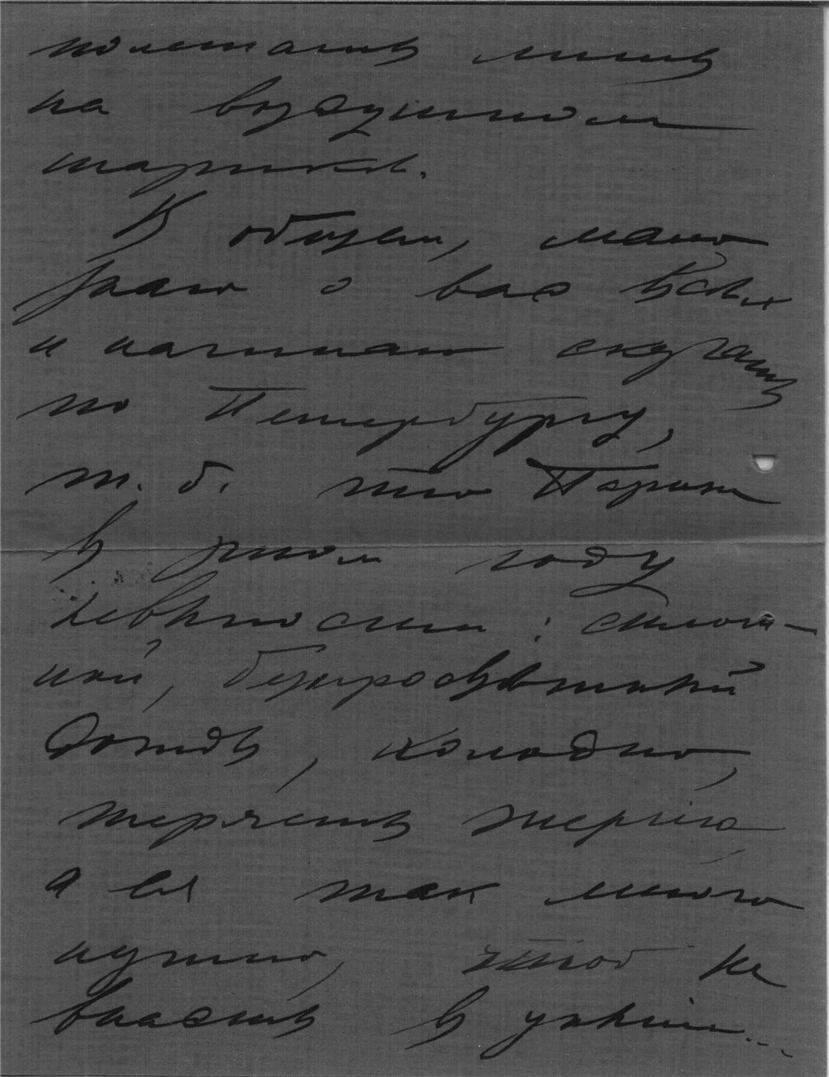 полетать лишь
на воздушном
шарике.
В общем, мало
знаю о вас всех
и начинаю скучать
по Петербургу,
т. б. что Париж
в этом году
невыносим: сплош-
ной, беспросветный
дождь, холодно,
теряешь энергию,
а ея так много
нужно, чтоб не
впасть в уныние...